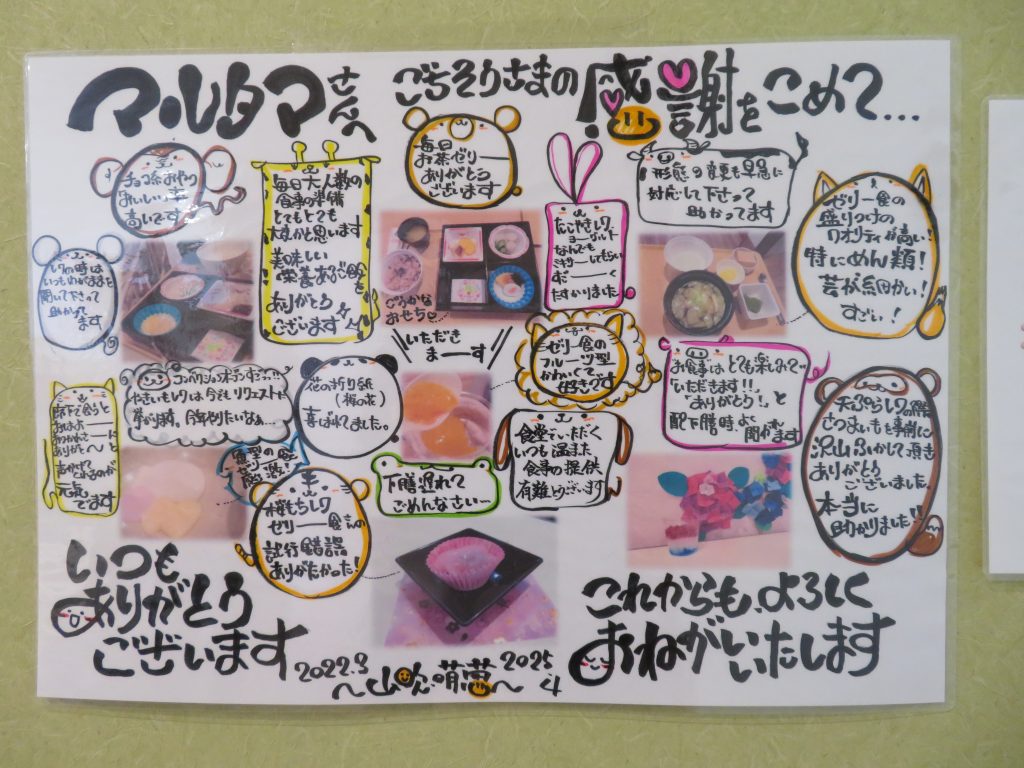 マルタマさんへ
ごちそうさまの感謝をこめて…
チョコ系おやつ
おいしい率
高いです
毎日大人数の
食事の準備
とてもとても
大変かと思います
美味しい
栄養あるご飯を
ありがとう
ございます
毎日
お茶ゼリー
ありがとう
ございます
たこやきレク
ヨーグルト
なんでも
ミキサーしてもらい
たすかりました
形態の変更も早急に
対応して下さって
助かってます
ゼリー食の
盛りつけの
クオリティが高い!
特にめん類!
芸が細かい!
すごい!
レクの時は
いつもわがままを
聞いて下さって
助かって
ます
じみかな
おせち
いただき
まーす
コンベクションオーブンすごっ!!
やきいもレクは今でもリクエストが
挙がります。今年やりたいなぁ…
花の折り紙
(梅の花)
喜ばれてました。
ゼリー食の
フルーツ型
かわいくて
好きです
お食事はとても楽しみで
"いただきます!!"
「ありがとう!」と
配下膳時よく
聞かれます
天ぷらレクの際
さつまいもを事前に
沢山ふかして頂き
ありがとう
ございました。
本当に
助かりました!!
元気
でます
桜もちレク
ゼリー食さんの
試行錯誤
ありがたかった!
下膳遅れて
ごめんなさい…
食堂でいただく
いつも温また
食事の提供
有難うございます
いつも
ありがとう
ございます
これからも、よろしく
おねがいいたします
2022.9
2025
4
〜山吹・萌恵〜